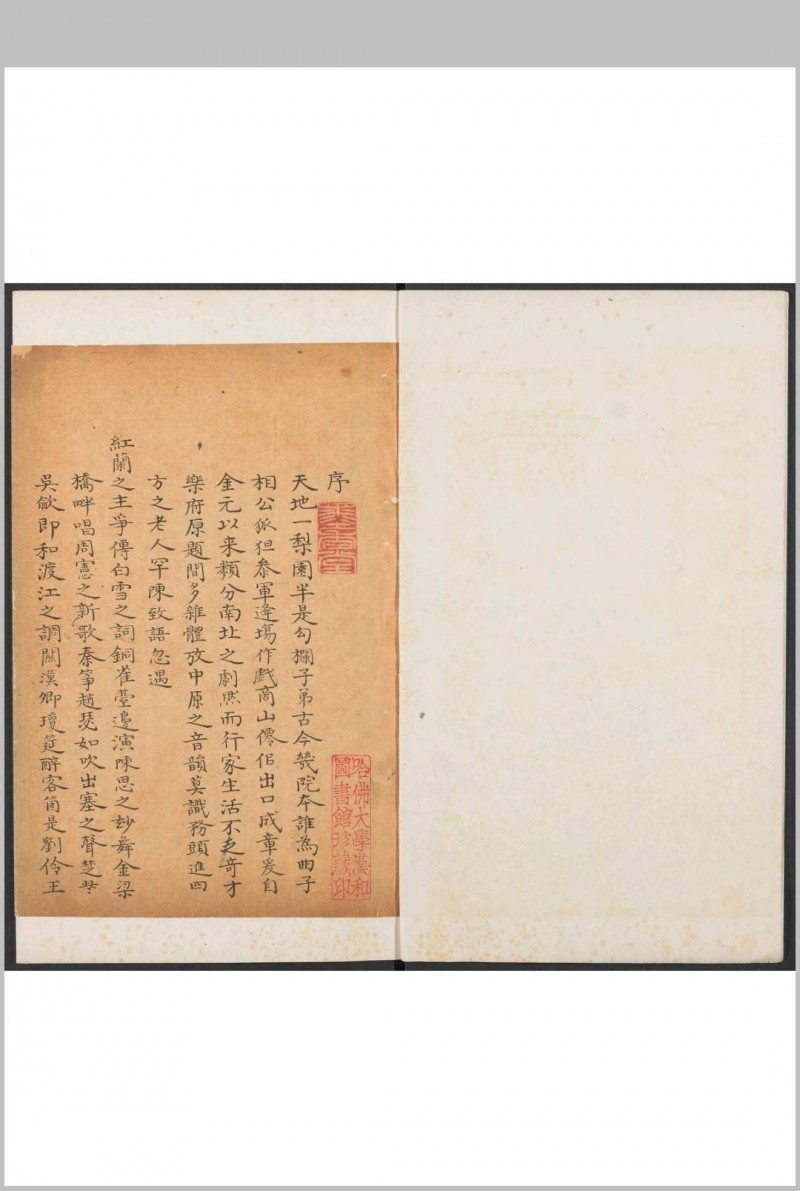 序
天地一梨園半是勾欄子弟古今幾院本誰為曲子
相公狐狚叅軍逢塲作戲商山僊侶出口成章爰自
金元以来類分南北之劇然而行家生活不乏奇才
樂府原題間多雜體攷中原之音韻莫識務頭進四
方之老人罕陳致語忽遇
紅蘭之主爭傳白雪之詞銅雀臺邊演陳思之玅舞金梁
橋畔唱周憲之新歌秦箏趙瑟如吹出塞之聲楚
吳歈即和渡江之調關漢卿瓊筵醉客箇是劉伶王
哈佛大學漢和
圖書館珍藏印